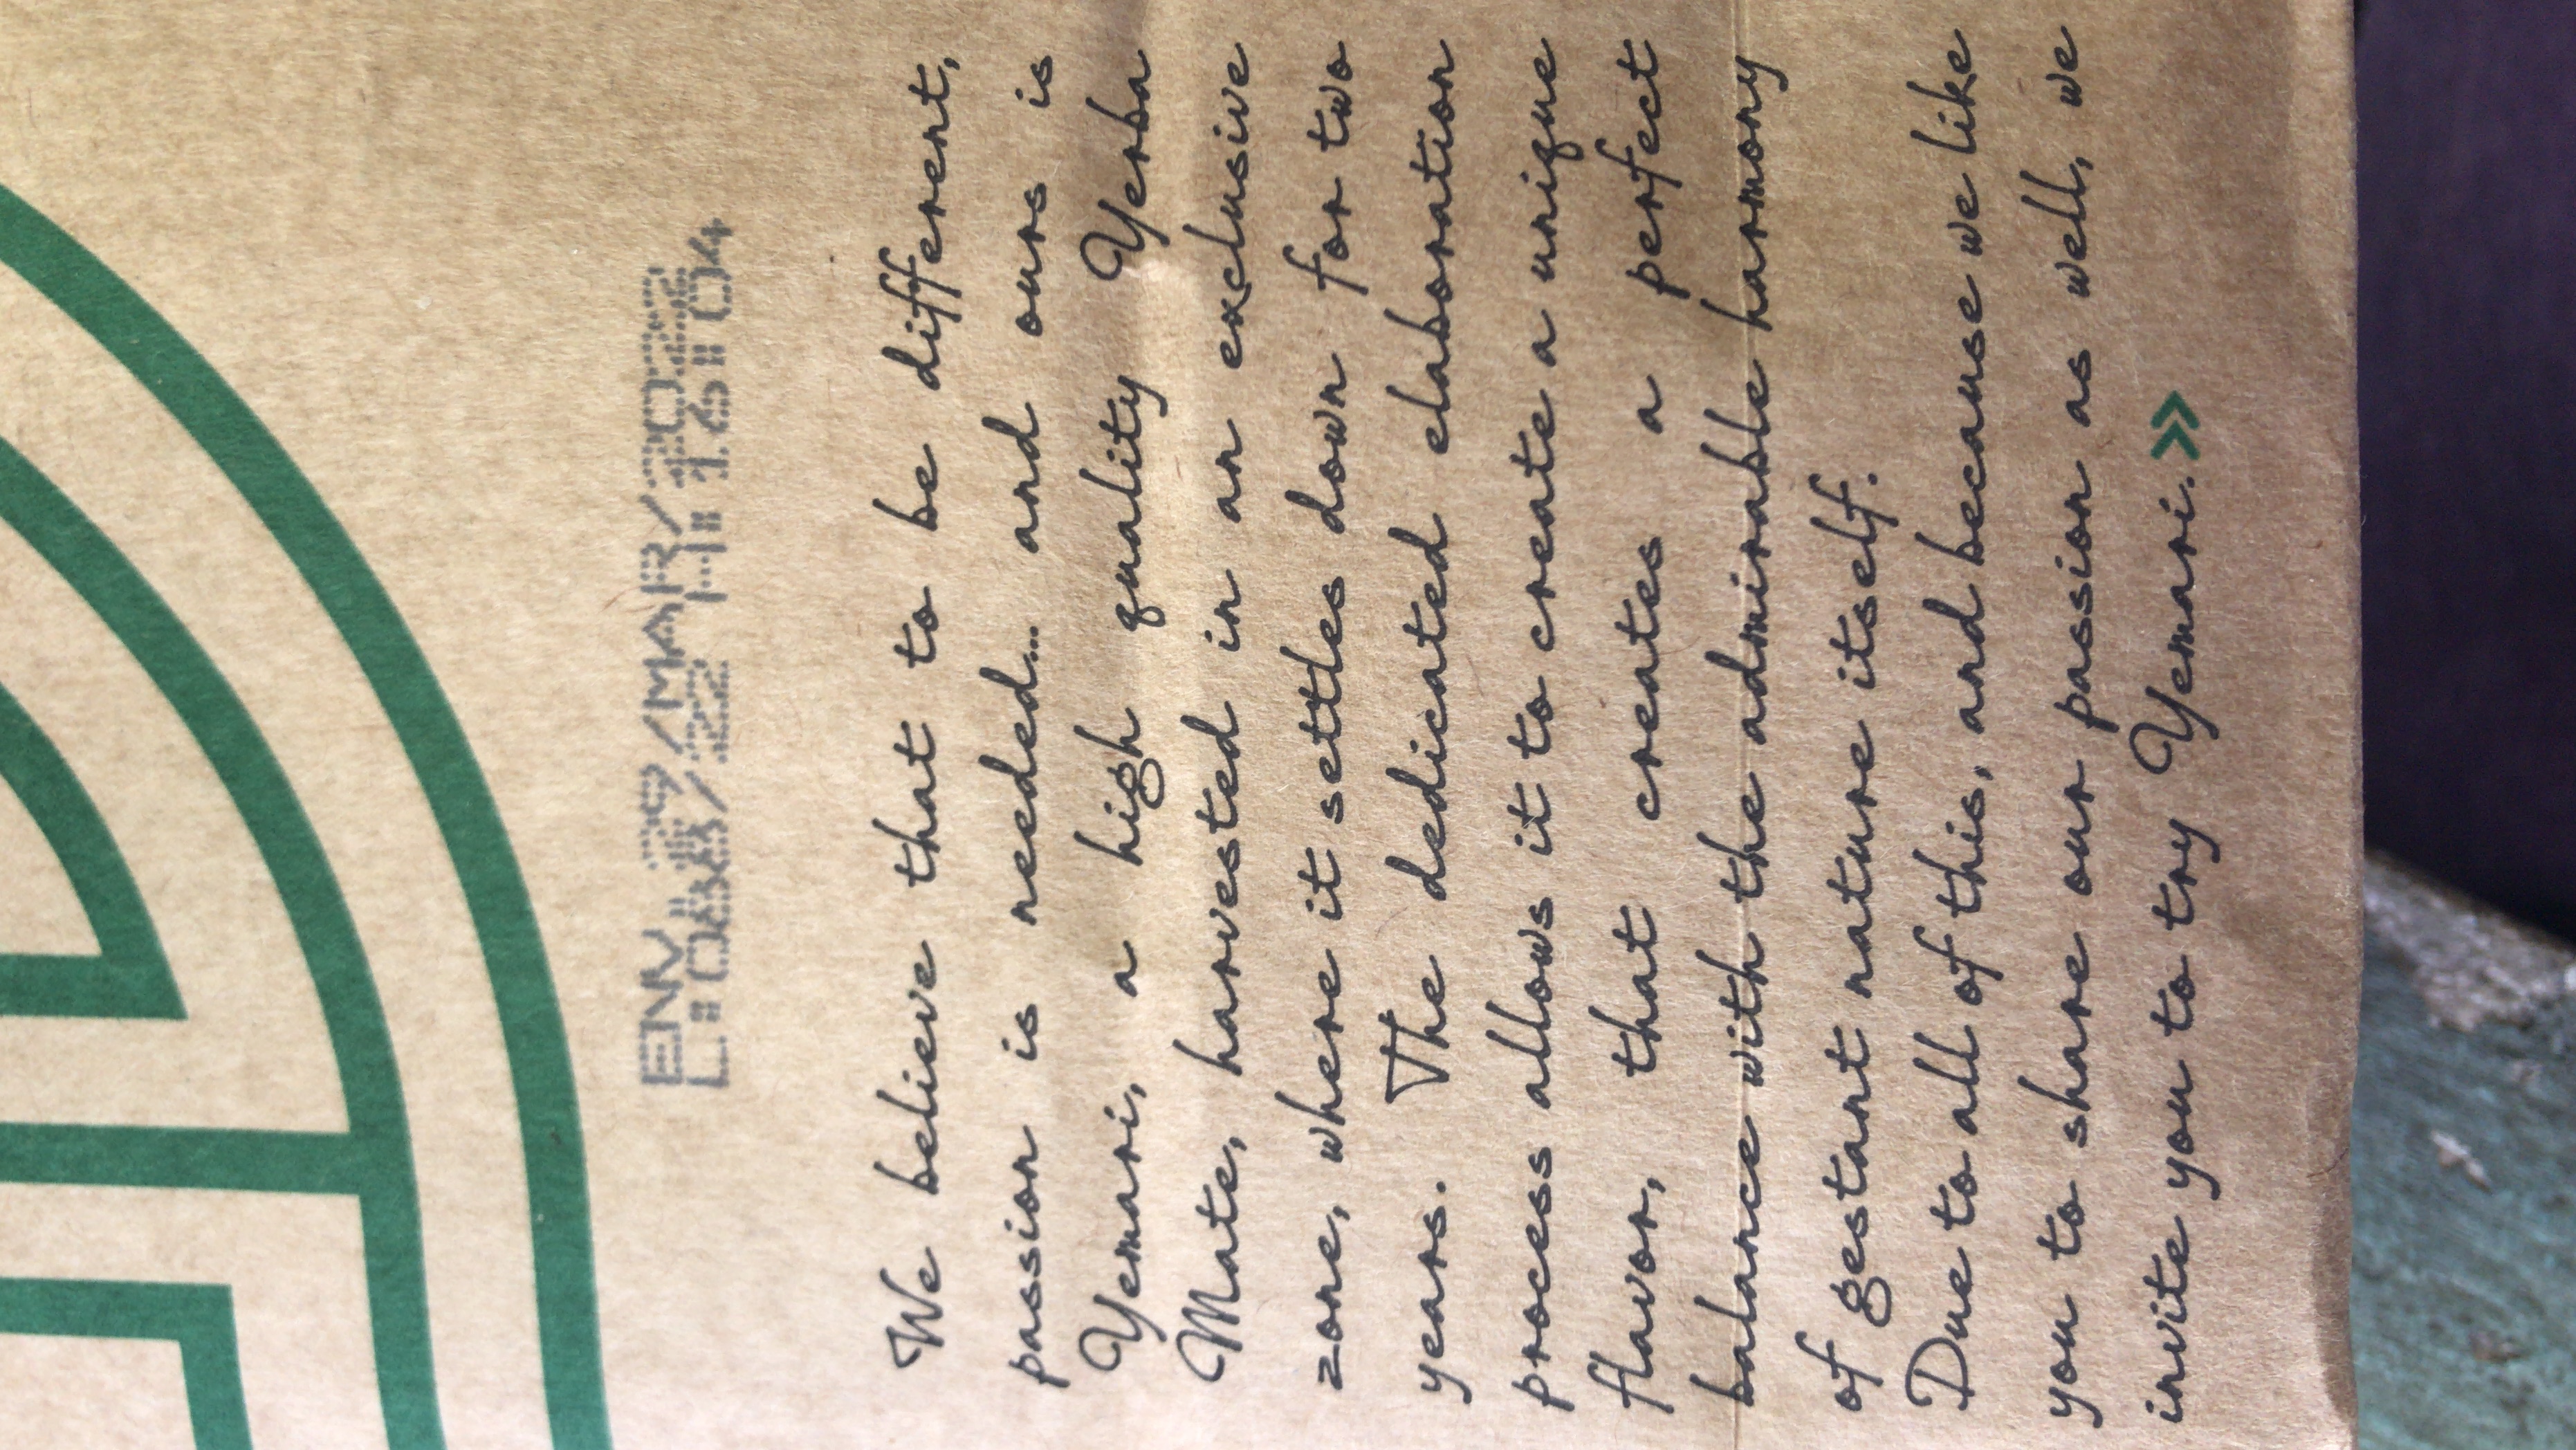 ENV 29/MAR/2022
We believe that to be different,
passion is needed... and ours is
Yemari, a high quality Yerba
Mate, harvested in an exclusive
zone, where it settles down for two
years. The dedicated elaboration
process allows it to create a unique
flavor, that creates a perfect
balance with the admirable harmony
of gestant nature itself.
Due to all of this, and because we like
you to share our passion as well, we
invite you to try Yemari.»